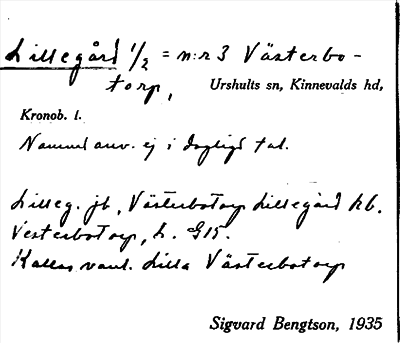 Lillegård 1/2 = n:r 3 Västerbo-
torp,
Urshults sn, Kinnevalds hd,
Kronob. l.
Namnet anv. ej i dagligt tal.
Lilleg. jb, Västerbotorp Lillegård kb.
Vesterbotorp, L. G15.
Kallas vanl. Lilla Västerbotorp
Sigvard Bengtson, 1935